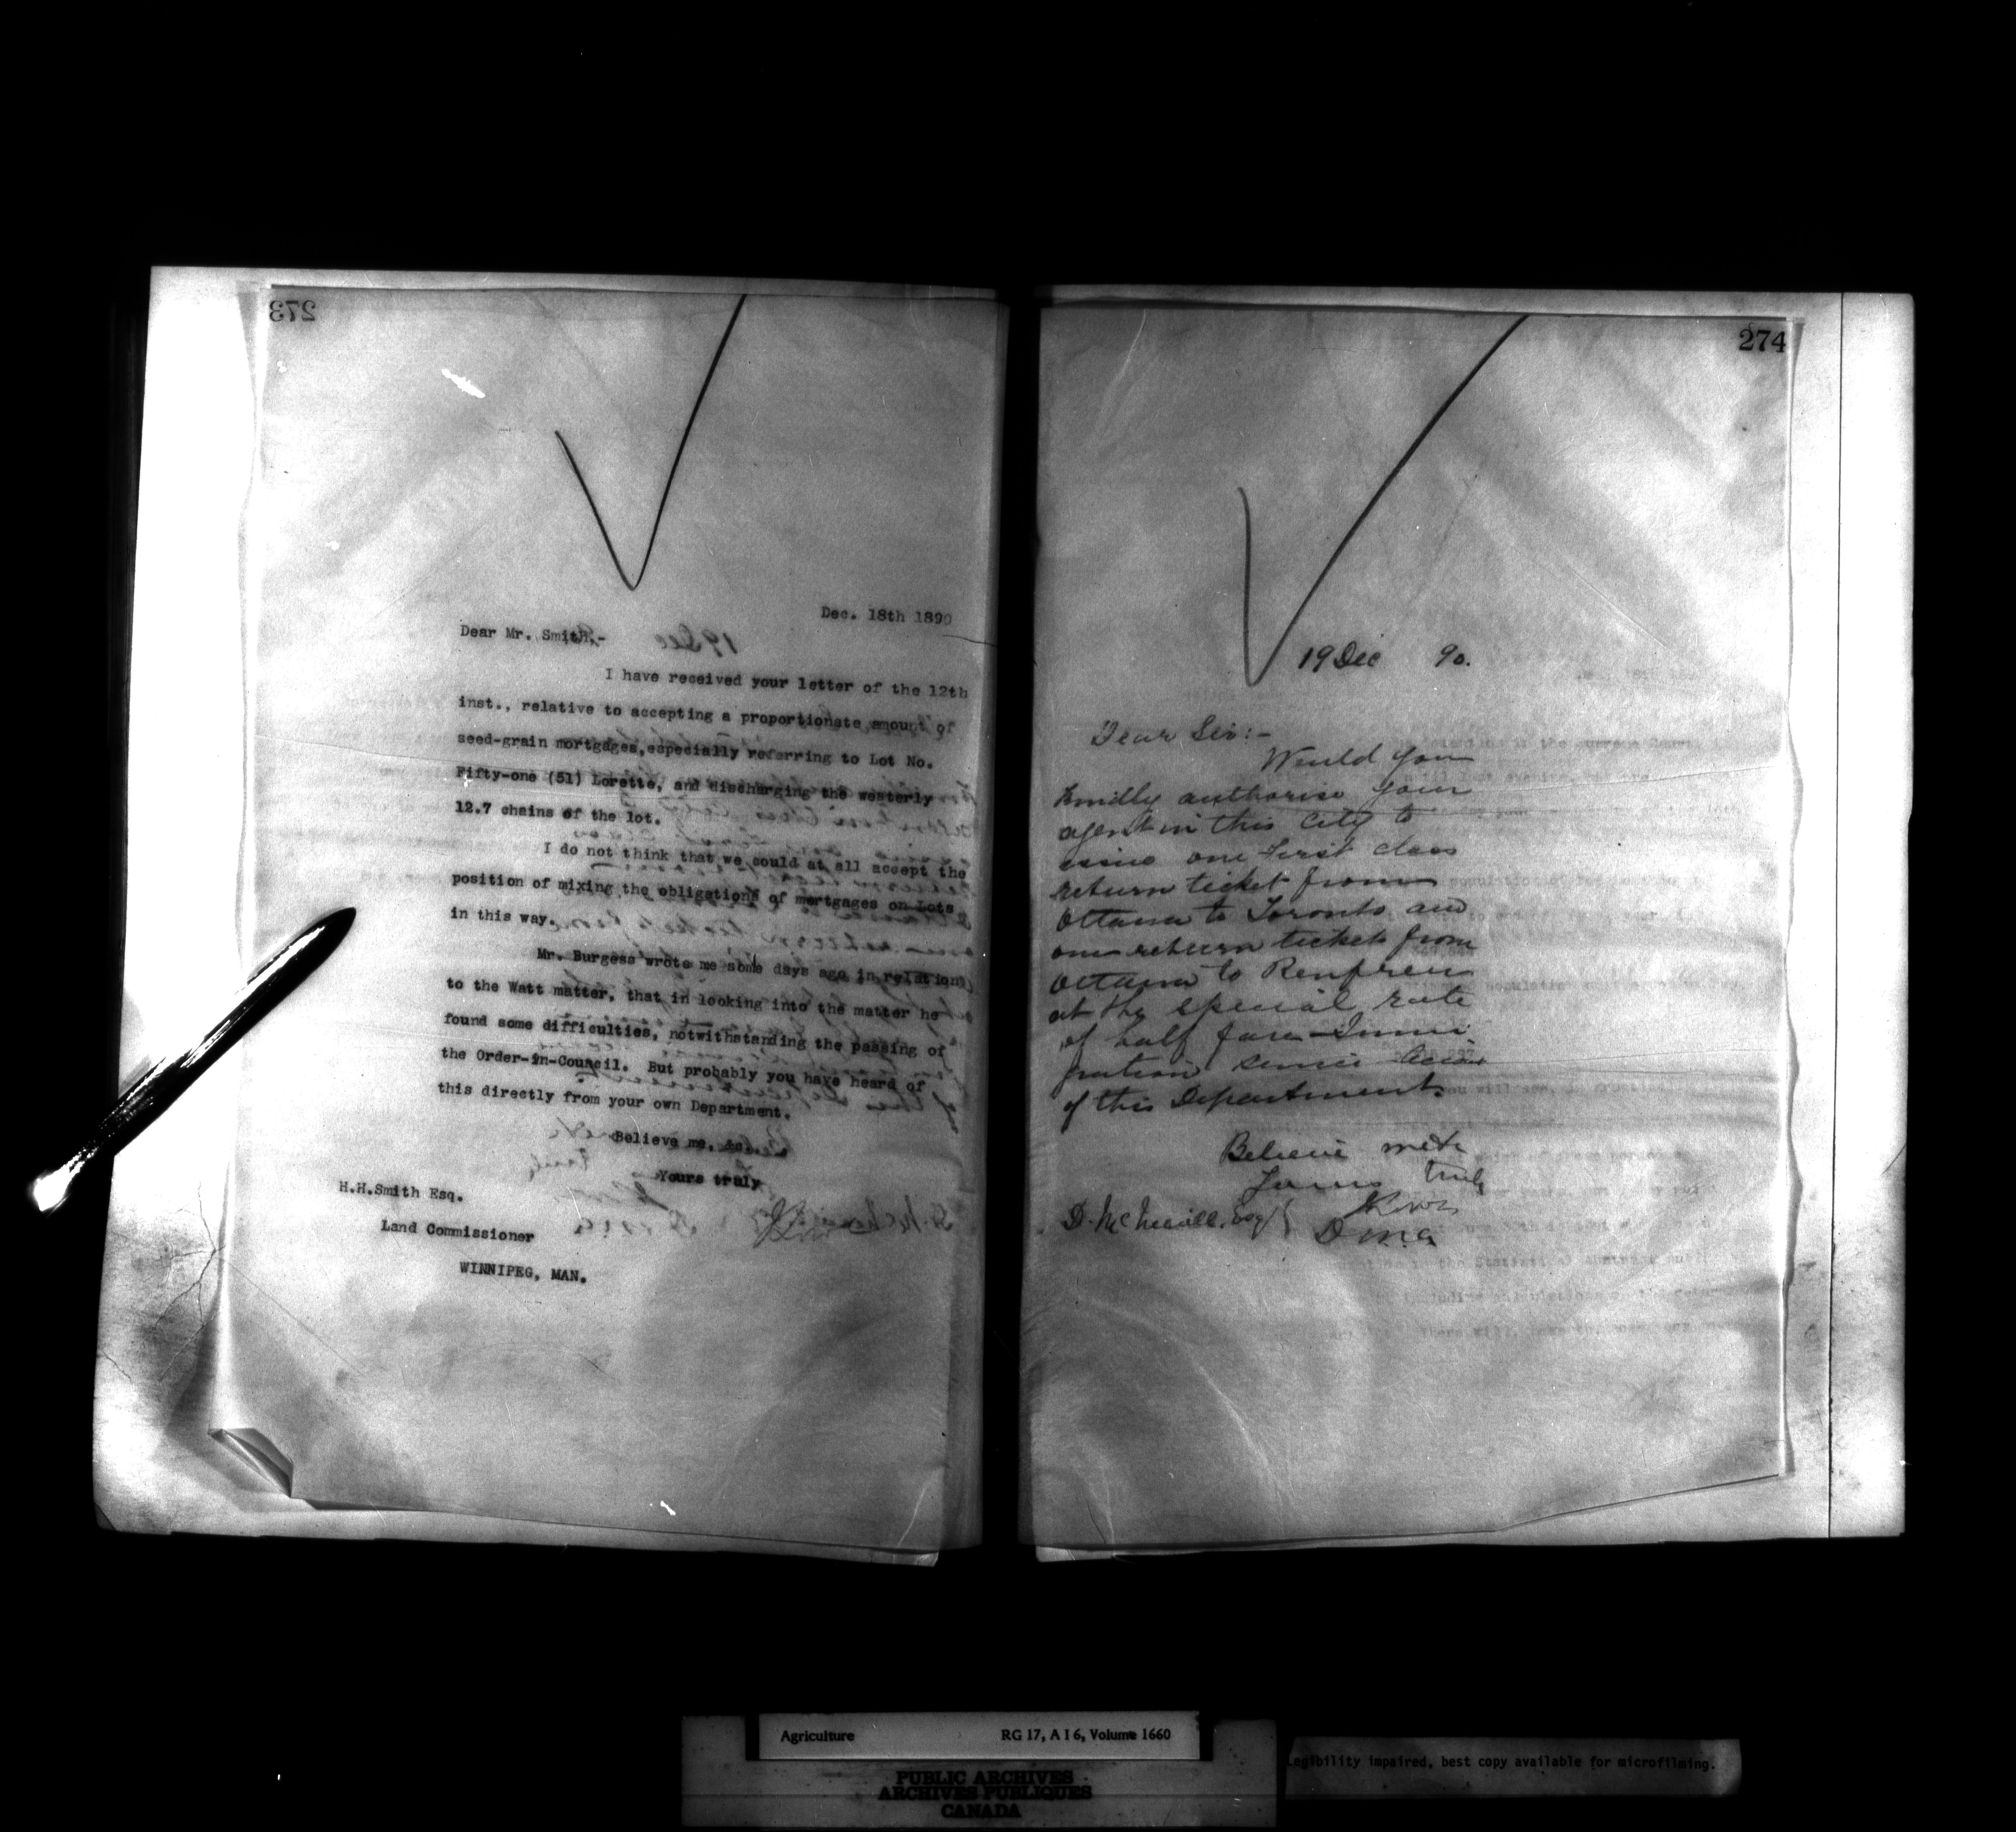 273
Dec. 18th 1890
Dear Mr. Smith,-
I have received your letter of the 12th
inst., relative to accepting a proportionate amount of
seed-grain mortgages, especially referring to Lot No.
Fifty-one (51) Lorette, and discharging the westerly
12.7 chains of the lot.
I do not think that we could at all accept the
position of mixing the obligations of mortgages on Lots
in this way.
Mr. Burgess wrote me some days ago in relation
to the Watt matter, that in looking into the matter he
found some difficulties, notwithstanding the passing of
the Order-in-Council. But probably you have heard of
this directly from your own Department.
Believe me, &c.
Yours truly
H.H.Smith Esq.
Land Commissioner
WINNIPEG, MAN.
274
19 Dec 90.
Dear Sir:-
Would you
kindly authorise your
agent in this City to
issue one first class
return ticket from
Ottawa to Toronto and
one return ticket from
Ottawa to Renfrew
at the special rate
of half fare - Immi
gration service
of this Department.
Believe me
Yours truly
D. McNicoll, Esq
D.M.A.
Agriculture RG 17, A I 6, Volume 1660
PUBLIC ARCHIVES
ARCHIVES PUBLIQUES
CANADA
Legibility impaired, best copy available for microfilming.